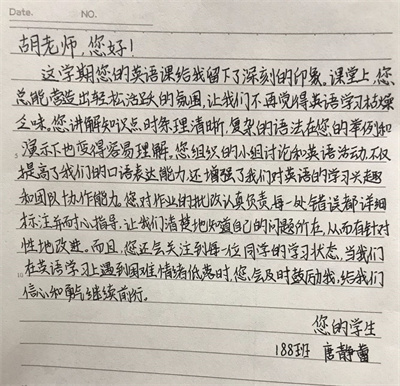 Date.  NO.
胡老师，您好！
这学期您的英语课给我留下了深刻的印象。课堂上，您
总能营造出轻松活跃的氛围，让我们不再觉得英语学习枯燥
乏味。您讲解知识点时条理清晰，复杂的语法在您的举例和
5 演示下也变得容易理解。您组织的小组讨论和英语活动，不仅
提高了我们的口语表达能力，还增强了我们对英语的学习兴趣
和团队协作能力。您对作业的批改认真负责，每一处错误都详细
标注并耐心指导，让我们清楚地知道自己的问题所在，从而有针对
性地改进。而且，您还会关注到每一位同学的学习状态，当我们
10 在英语学习上遇到困难情绪低落时，您会及时鼓励我，给我们
信心和勇气继续前行。
您的学生
188班 唐静蕾